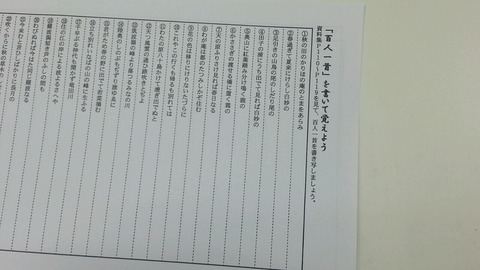 「百人一首」を書いて覚えよう
資料集P110~P119を見て、百人一首を書き写しましょう。
①秋の田のかりほの庵のとまをあらみ
②春過ぎて夏来にけらし白妙の
③足引きの山鳥の尾のしだり尾の
④田子の浦にうち出でて見れば白妙の
⑤奥山に紅葉踏み分け鳴く鹿の
⑥かささぎの渡せる橋に置く霜の
⑦天の原ふりさけ見れば春日なる
⑧わが庵は都のたつみしかぞ住む
⑨花の色は移りにけりないたづらに
⑩これやこの行くも帰るも別れては
⑪わたの原八十島かけて漕ぎ出でぬと
⑫天つ風雲の通ひ路吹きとぢよ
⑬筑波嶺の峰より落つるみなの川
⑭陸奥のしのぶもぢずり誰ゆゑに
⑮君がため春の野に出でて若菜摘む
⑯立ち別れいなばの山の峰に生ふる
⑰千早ぶる神代も聞かず竜田川
⑱住の江の岸に寄る波よるさへや
⑲難波潟短き芦のふしの間も
⑳わびぬれば今はた同じ難波なる
㉑今来むと言ひしばかりに長月の
㉒吹くからに秋の草木の